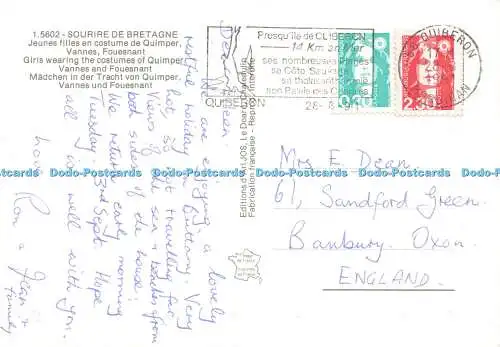 1.5602 - SOURIRE DE BRETAGNE
Jeunes filles en costume de Quimper,
Vannes, Fouesnant
Girls wearing the costumes of Quimper,
Vannes and Fouesnant
Mädchen in der Tracht von Quimper,
Vannes und Fouesnant
Dear
We are enjoying a lovely
restful holiday in Brittany. Very
hot, so not travelling far.
Views of the sea & beaches from
both sides of the house.
We return early morning
Tuesday, 3rd Sept. Hope
all is well with you.
Love
Ron & Jean
& family
Editions d'Art JOS, Le Doaré, Châteaulin
Fabrication Française - Reproduction interdite
QUIBERON
Presqu'île de QUIBERON
14 Km en Mer
ses nombreuses Plages
sa Côte Sauvage
sa thalassothérapie
son Palais des Congrès
28-8-91
QUIBERON
Mrs E. Dean.
61, Sandford Green.
Banbury. Oxon.
ENGLAND.